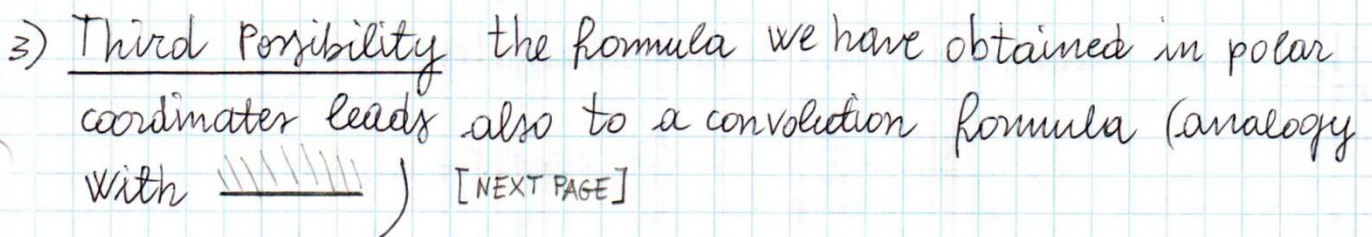 3) Third Possibility the formula we have obtained in polar
coordinates leads also to a convolution formula (analogy
with ) [NEXT PAGE]